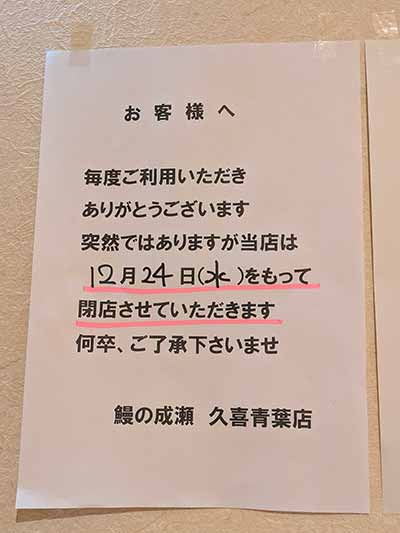 お客様へ
毎度ご利用いただき
ありがとうございます
突然ではありますが当店は
12月24日(水)をもって
閉店させていただきます
何卒、ご了承下さいませ
鰻の成瀬 久喜青葉店